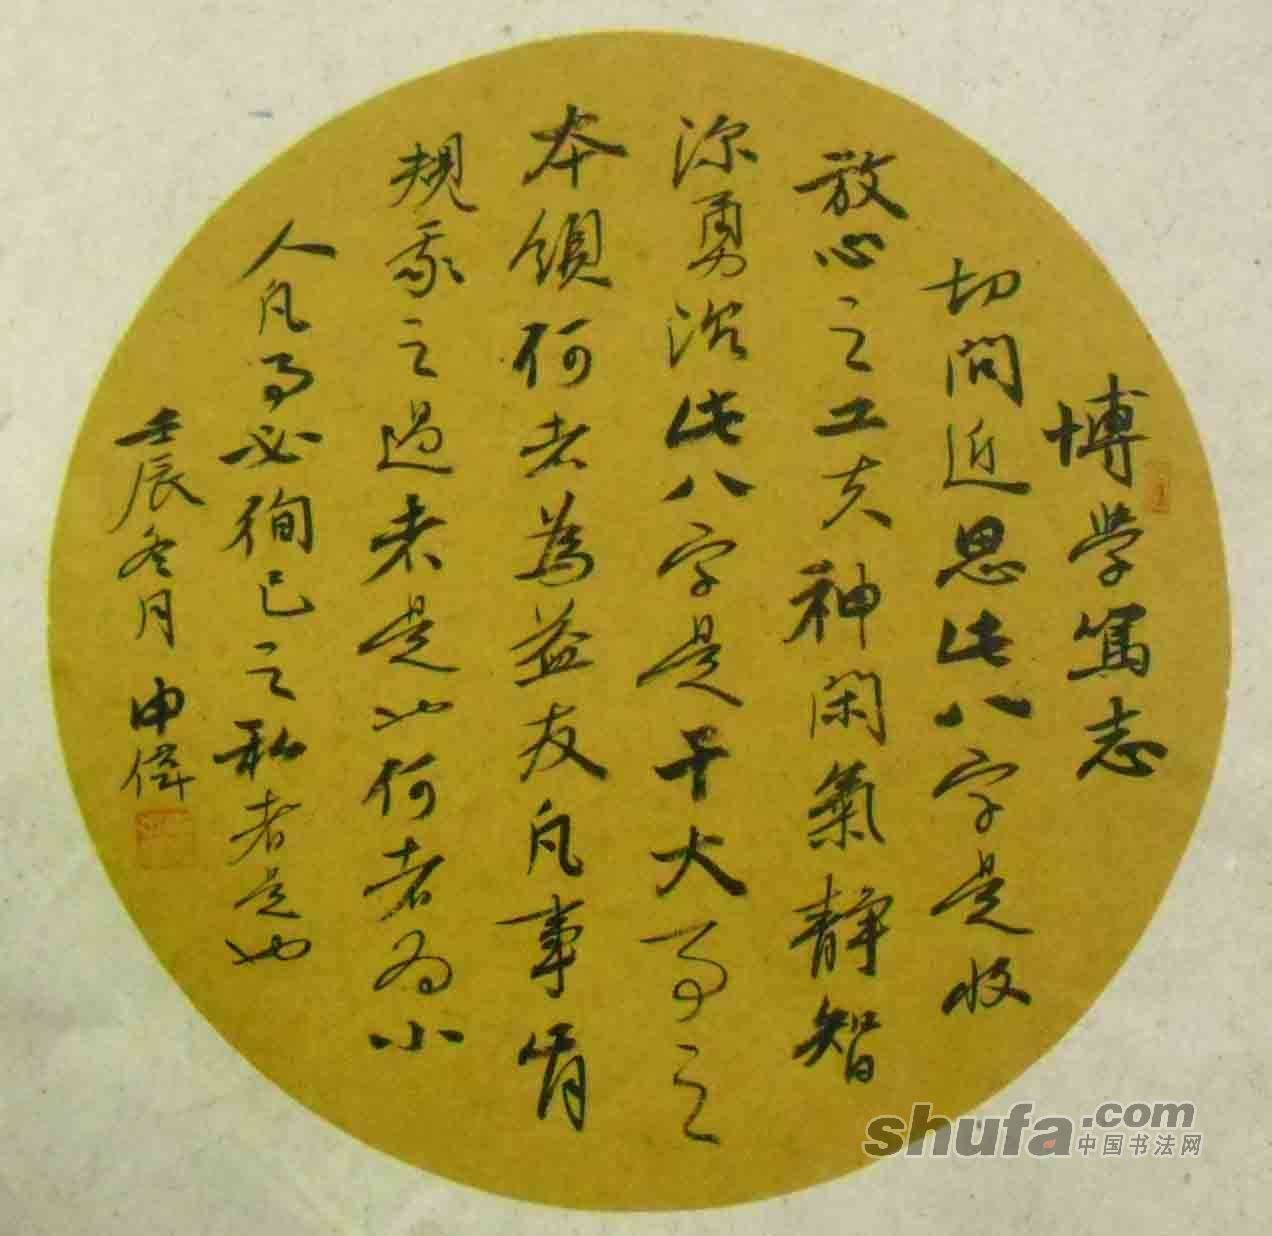 博學篤志
切問近思此八字是收
放心之工夫神閑氣靜智
深勇沉此八字是干大事之
本領何者為益友凡事肯
規我之過者是也何者為小
人凡事必徇己之私者是也
壬辰冬月 申偉
shufa.com
中国书法网